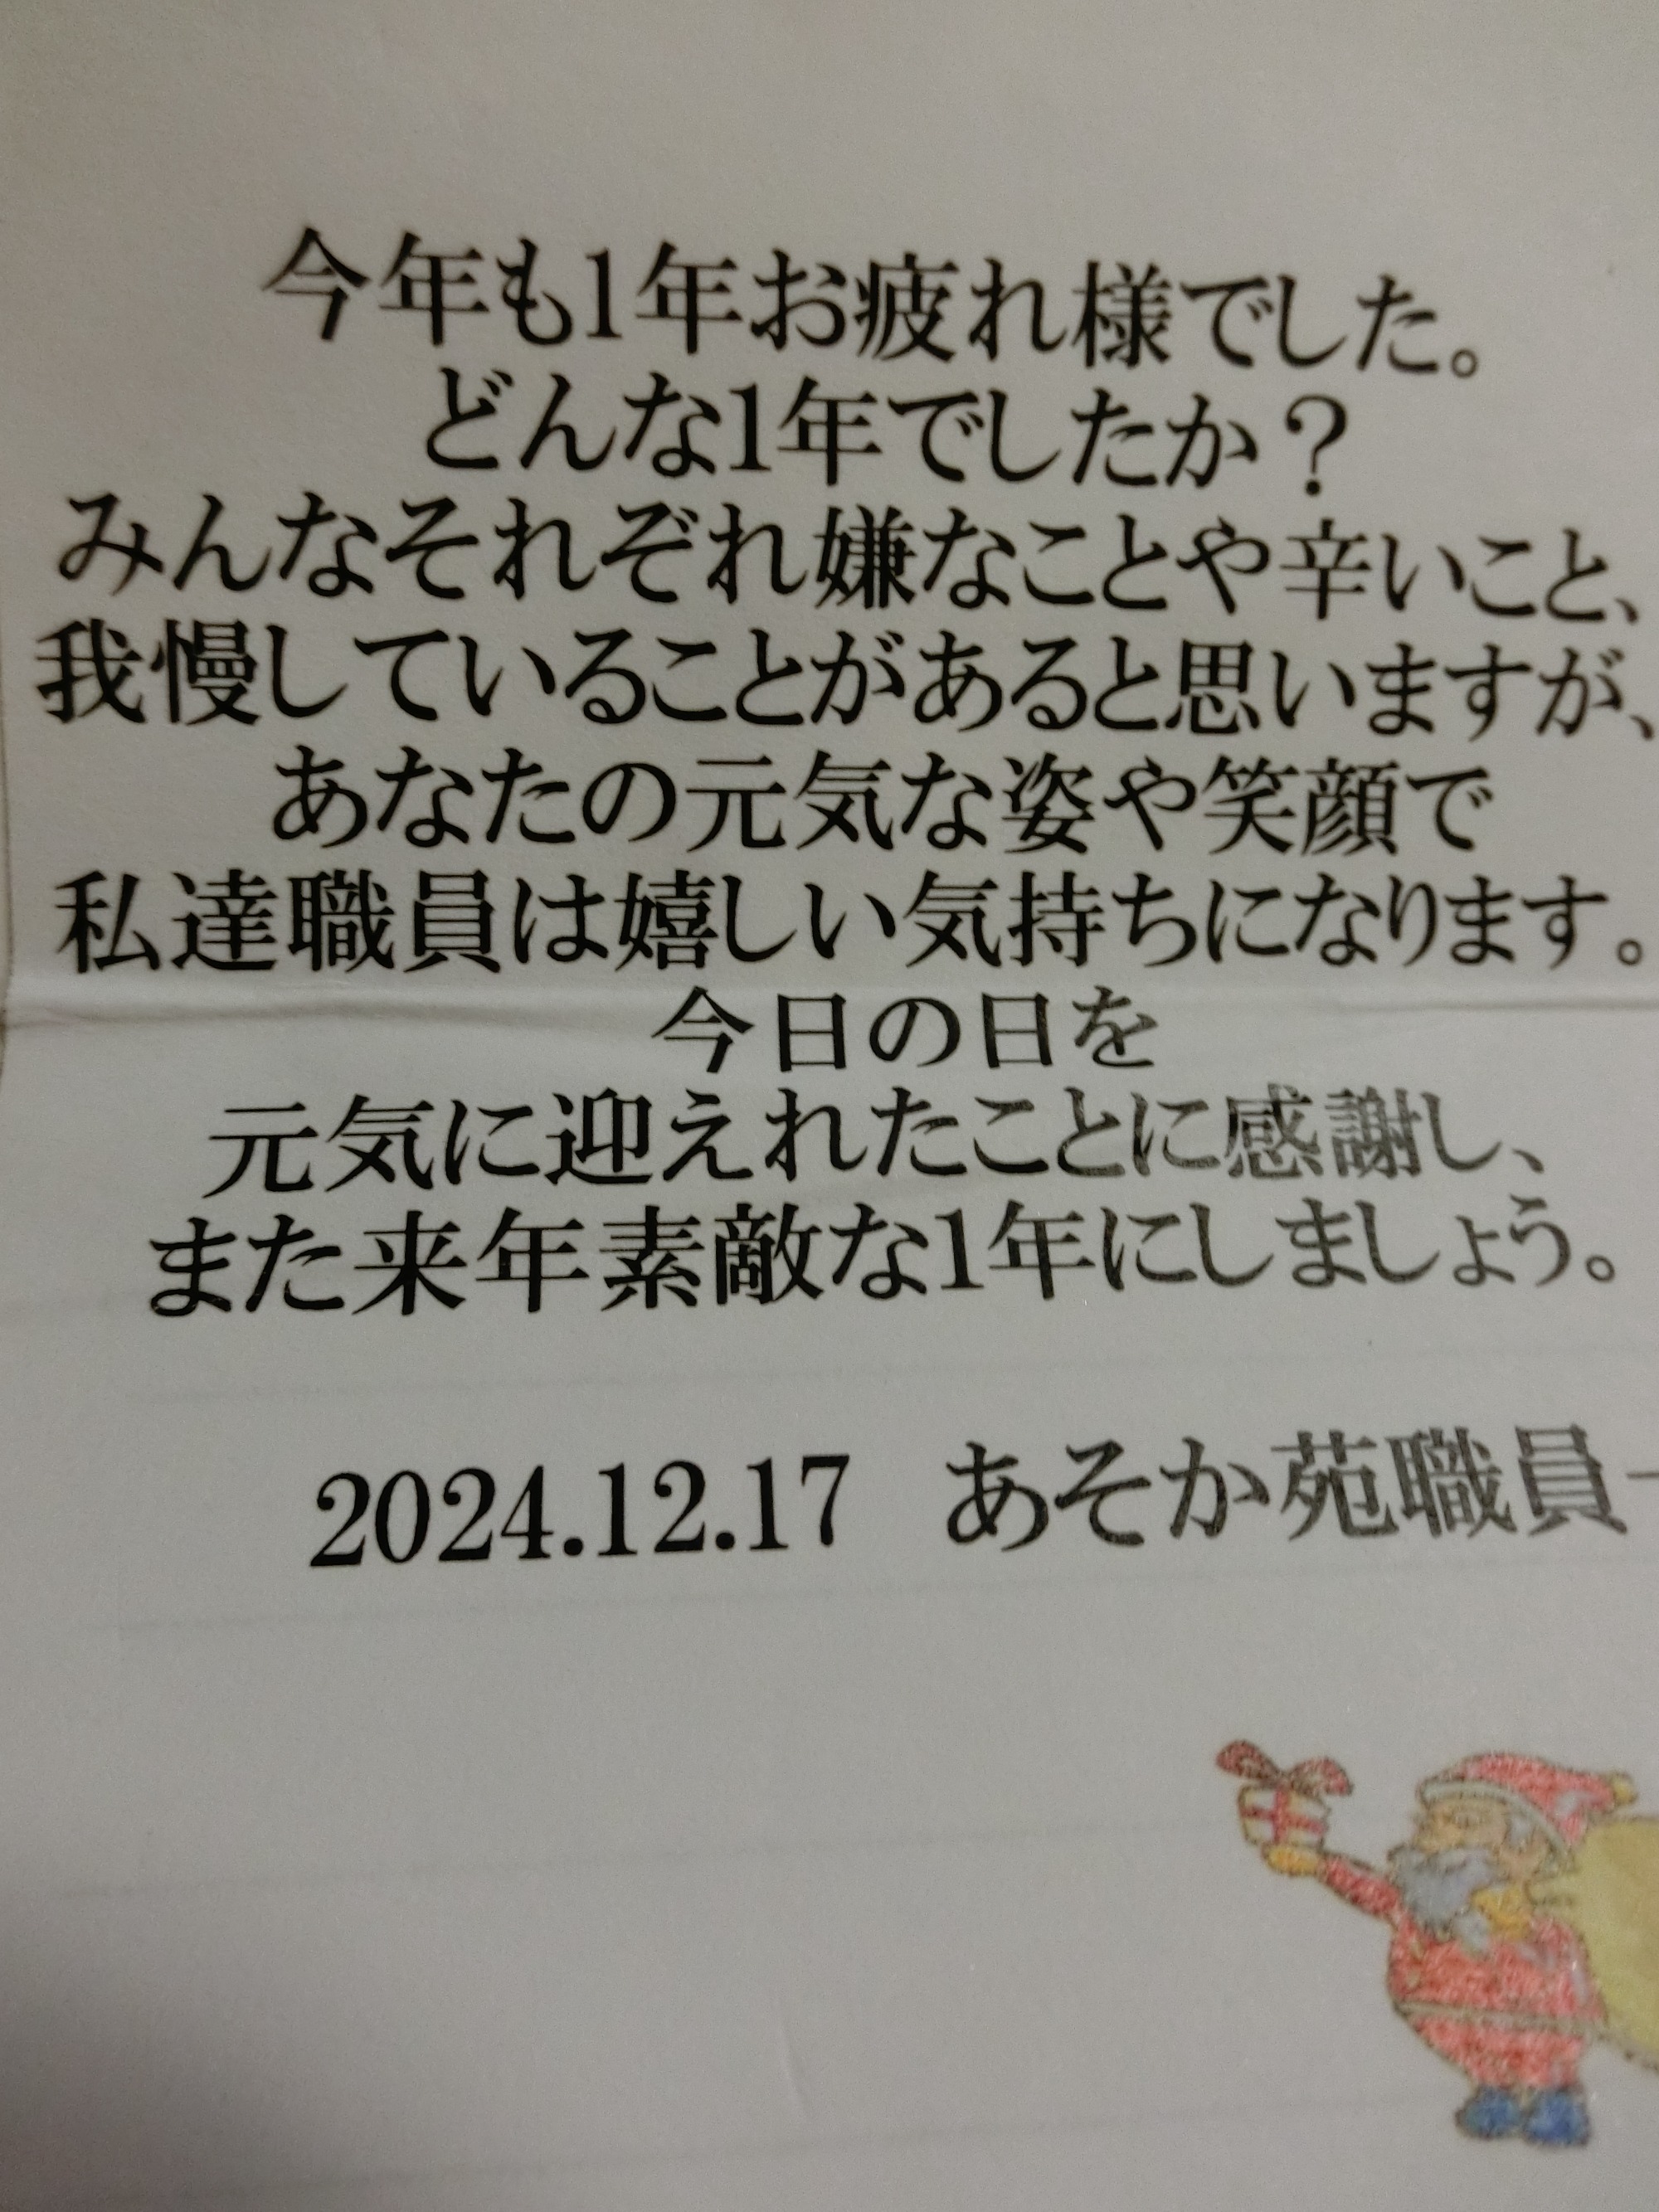 今年も1年お疲れ様でした。
どんな1年でしたか？
みんなそれぞれ嫌なことや辛いこと、
我慢していることがあると思いますが、
あなたの元気な姿や笑顔で
私達職員は嬉しい気持ちになります。
今日の日を
元気に迎えれたことに感謝し、
また来年素敵な1年にしましょう。
2024.12.17　あそか苑職員一